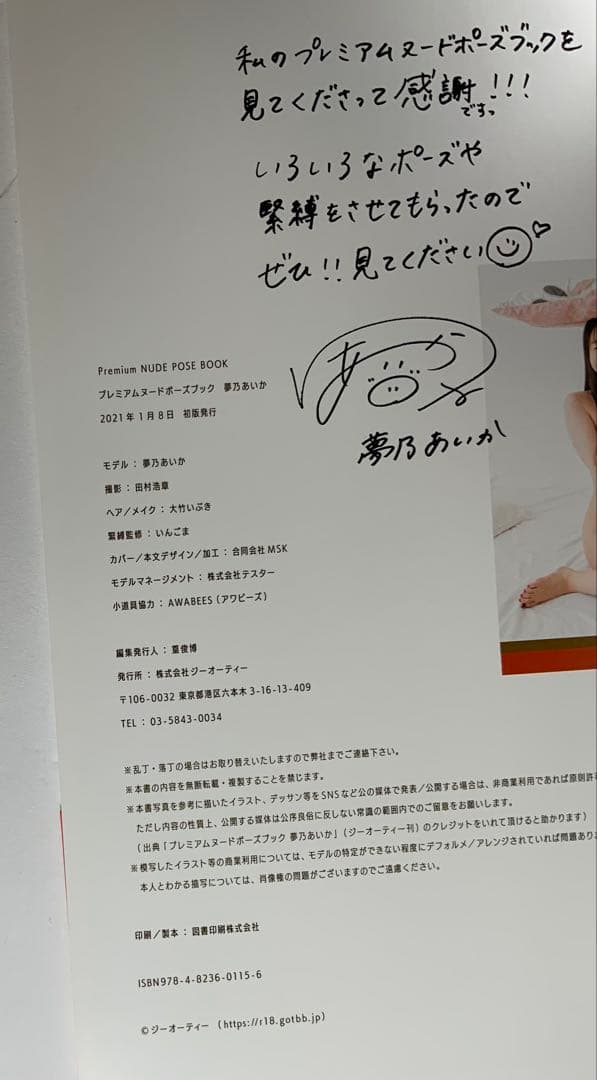 私のプレミアムヌードポーズブックを
見てくださって感謝ですっ!!!
いろいろなポーズや
緊縛をさせてもらったので
ぜひ!!見てください
あいか
夢乃あいか
Premium NUDE POSE BOOK
プレミアムヌードポーズブック 夢乃あいか
2021年1月8日 初版発行
モデル：夢乃あいか
撮影：田村浩章
ヘア／メイク：大竹いぶき
緊縛監修：いんごま
カバー／本文デザイン／加工：合同会社MSK
モデルマネージメント：株式会社テスター
小道具協力：AWABEES（アワビーズ）
編集発行人：葉俊博
発行所：株式会社ジーオーティー
〒106-0032 東京都港区六本木3-16-13-409
TEL：03-5843-0034
※乱丁・落丁の場合はお取り替えいたしますので弊社までご連絡下さい。
※本書の内容を無断転載・複製することを禁じます。
※本書写真を参考に描いたイラスト、デッサン等をSNSなど公の媒体で発表／公開する場合は、非商業利用であれば原則許可
ただし内容の性質上、公開する媒体は公序良俗に反しない常識の範囲内でのご留意をお願いします。
（出典「プレミアムヌードポーズブック 夢乃あいか」（ジーオーティー刊）のクレジットをいれて頂けると助かります）
※模写したイラスト等の商業利用については、モデルの特定ができない程度にデフォルメ／アレンジされていれば問題ありま
本人とわかる描写については、肖像権の問題がございますのでご遠慮ください。
印刷／製本：図書印刷株式会社
ISBN978-4-8236-0115-6
©ジーオーティー（https://r18.gotbb.jp）